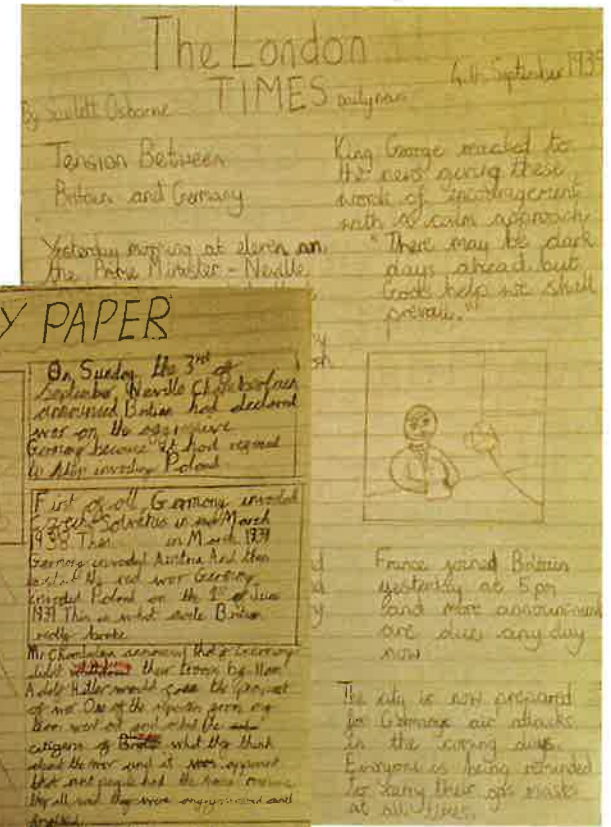 The London
TIMES Daily news
4th September 1939
By Scarlett Osborne
Tension Between
Britain and Germany
Yesterday morning at eleven am
the Prime Minister - Neville
King George reacted to
the news giving these
words of encouragement
with a calm approach
"There may be dark
days ahead but
Gods help we shall
prevail."
France joined Britain
yesterday at 5 pm
and more announcment
are due any day
now
The city is now prepared
for Germany air attacks
in the coming days.
Everyone is being reminded
to carry their gas masks
at all times.
Y PAPER
On Sunday the 3rd of
September Neville Chamberlain
announced Britian had declared
war on the aggressive
Germany because it had refused
to stop invading Poland
First of all, Germany invaded
in March
1938. Then in March 1939
Germany invaded Austria And then
Germany
invaded Poland on the 1st of
1939 This is what made Britian
Mr Chamberlain announced that if Germany
didnt their troops by 11am
Adolf Hitler would face the
of war One of the
team went out and what the
citizens of what they think
about the war and it was apparent
that most people had the same
they all said they were and